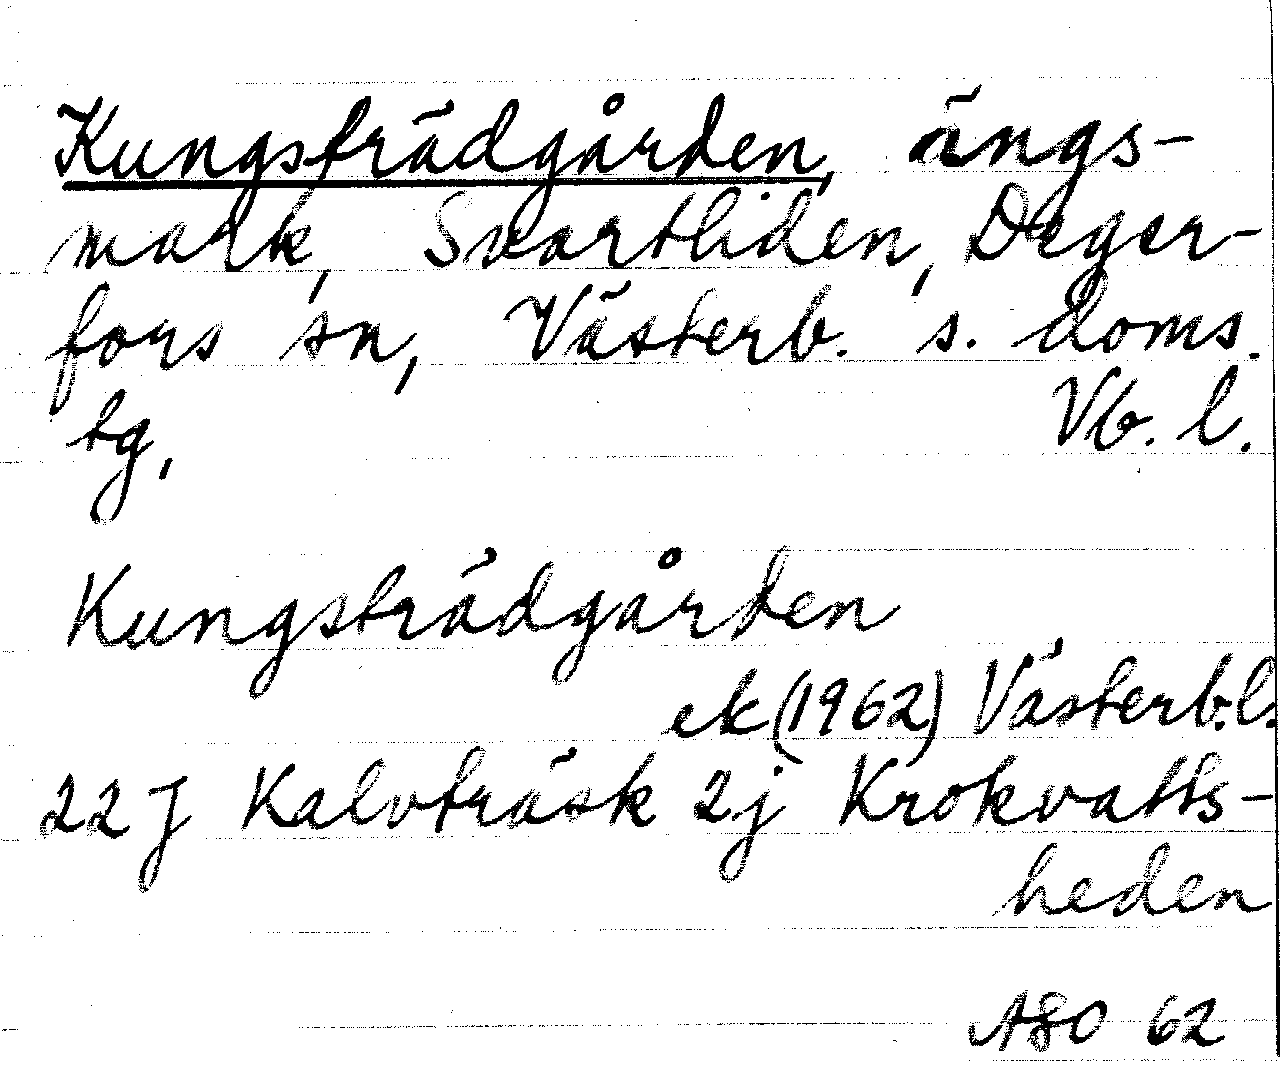 Kungsträdgården, ängs-
mark, Svartliden, Deger-
fors sn, Västerb. s. doms.
tg, Vb. l.
Kungsträdgården
ek (1962) Västerb. l.
22 J Kalvträsk 2j Krokvatts-
heden
ASO 62